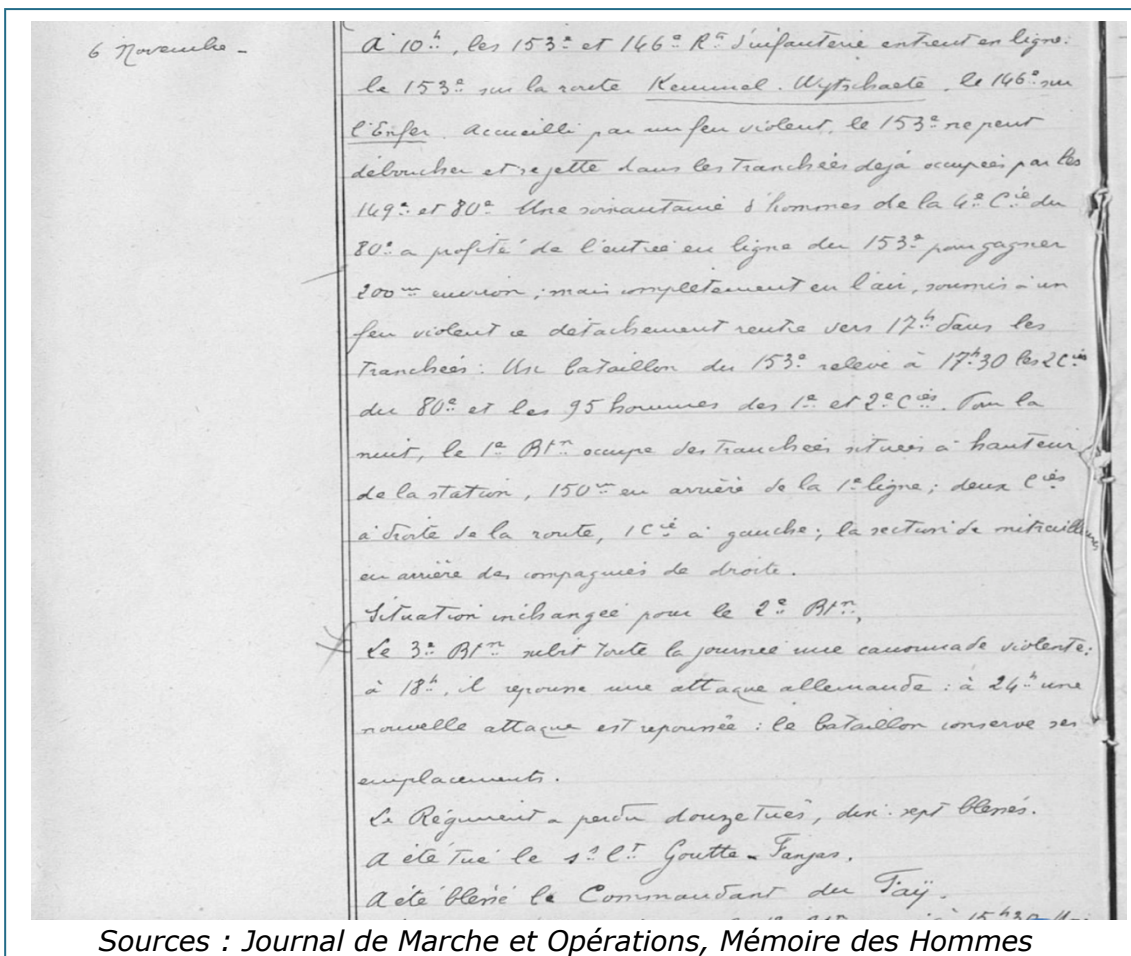 6 Novembre -
A 10h, les 153e et 146e Rts d'infanterie entrent en ligne:
le 153e sur la route Kemmel. Wytschaete, le 146e sur
l'Enfer. Accueilli par un feu violent, le 153e ne peut
déboucher et se jette dans les tranchées dejà occupées par les
149e et 80e Une soixantaine d'hommes de la 4e Cie du
80e a profité de l'entrée en ligne du 153e pour gagner
200m environ; mais complètement en l'air, soumis à un
feu violent ce détachement rentre vers 17h dans les
tranchées: Un bataillon du 153e relève à 17h30 les 2 Cies
du 80e et les 95 hommes des 1e et 2e Cies. Pour la
nuit, le 1e Btn occupe des tranchées situées à hauteur
de la station, 150m en arrière de la 1e ligne; deux Cies
à droite de la route, 1 Cie à gauche; la section de mitrailleuses
en arrière des compagnies de droite.
Situation inchangée pour le 2e Btn,
Le 3e Btn subit toute la journée une canonnade violente:
à 18h, il repousse une attaque allemande: à 24h une
nouvelle attaque est repoussée: le bataillon conserve ses
emplacements.
Le Régiment a perdu douze tués, dix-sept blessés.
A été tué le s/Lt Goutte-Fanjas.
A été blessé le Commandant du Faÿ.
à 15h30
Sources : Journal de Marche et Opérations, Mémoire des Hommes